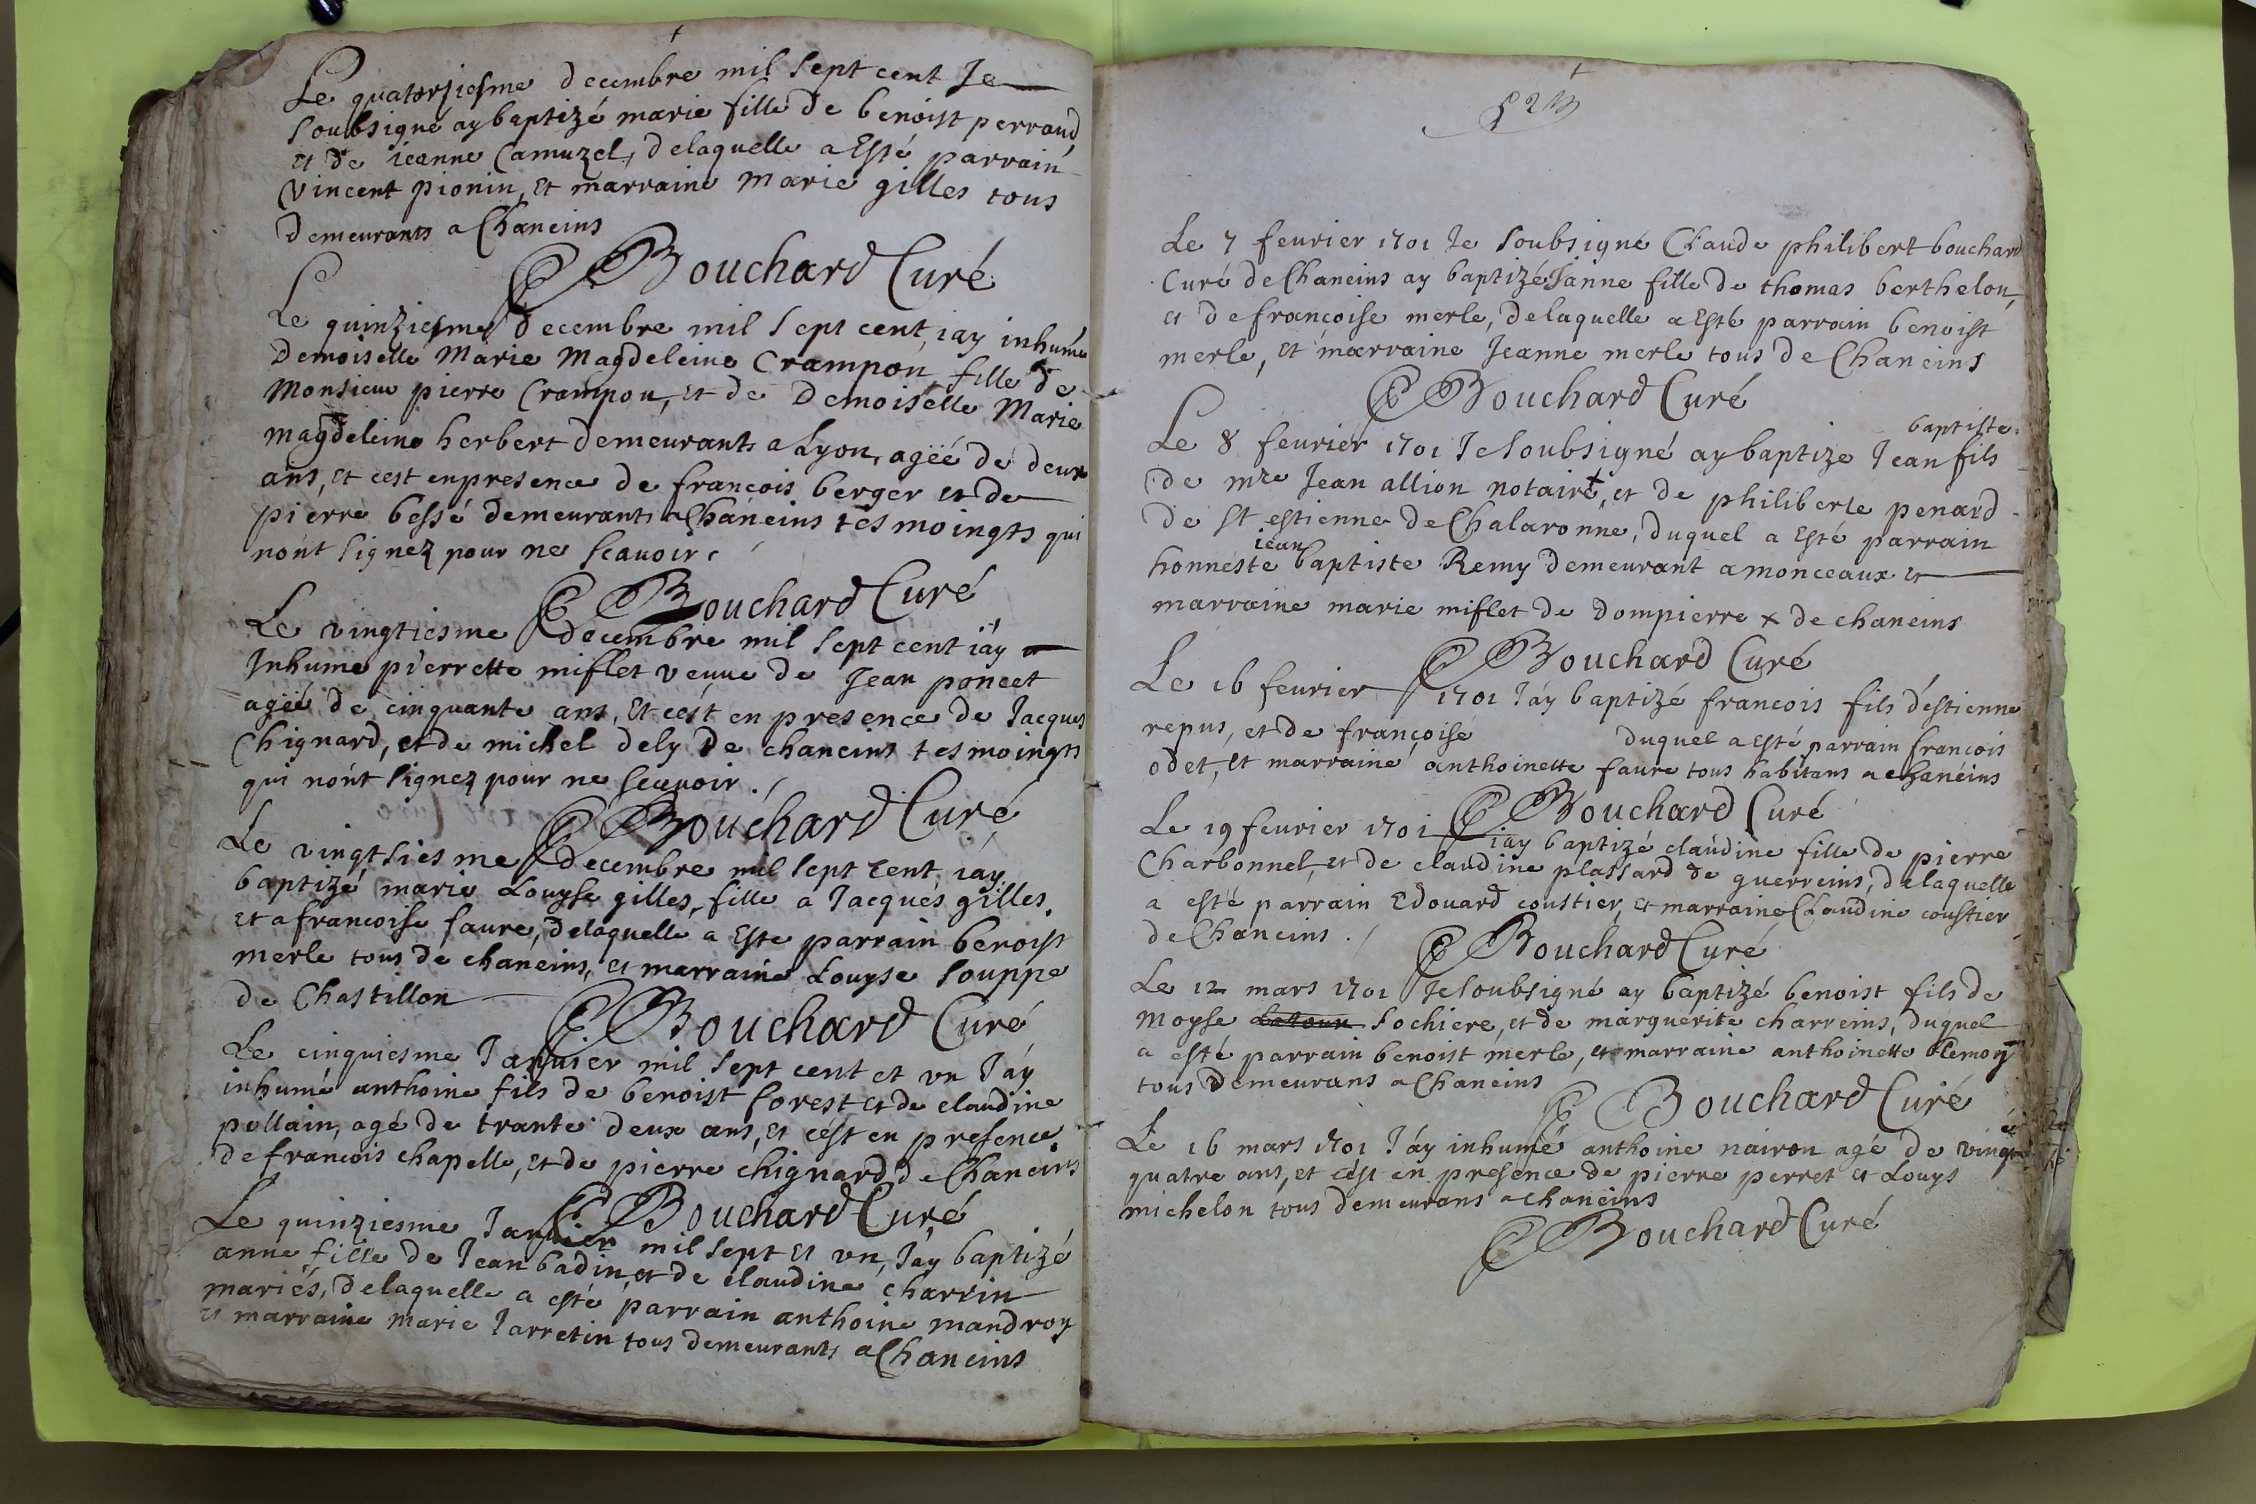 Le quatorziesme decembre mil sept cent Je
soubsigné ay baptizé marie fille de benoist perraud
et de ieanne Camuzel, delaquelle a Esté parrain
Vincent pionin, et marraine marie gilles tous
demeurants a Chaneins
Bouchard Curé
Le quinziesme decembre mil sept cent, iay inhumé
Demoiselle Marie Magdeleine Crampon fille de
Monsieur pierre Crampon, et de Demoiselle Marie
magdeleine herbert demeurants a Lyon, agëé de deux
ans, et cest enpresence de francois berger et de
pierre bessé demeurants a Chaneins tesmoingts qui
nont signez pour ne scauoir
Bouchard Curé
Le vingtiesme decembre mil sept cent iay
Inhume pierrette miflet veuue de Jean poncet
agëé de cinquante ans, Et cest en presence de Jacques
Chignard, et de michel dely de chaneins tesmoingts
qui nont signez pour ne scauoir.
Bouchard Curé
Le vingtsiesme decembre mil sept cent iay
baptizé marie Louyse gilles, fille a Jacques gilles
et a francoise faure, delaquelle a Esté parrain benoist
merle tous de chaneins, et marraine Louyse souppe
de Chastillon
Bouchard Curé
Le cinquiesme Januier mil sept cent et vn Jáy
inhumé anthoine fils de benoist forest et de claudine
pollain, agé de trante deux ans, et cest en presence
de francois chapelle, et de pierre chignard de Chaneins
Bouchard Curé
Le quinziesme Januier mil sept et vn, Jáy baptizé
anne fille de Jean badin, et de claudine charrin
mariés, delaquelle a esté parrain anthoine mandroy
et marraine marie Jarretin tous demeurants a Chaneins
Le 7 feurier 1701 Je soubsigné Claude philibert bouchard
Curé de Chaneins ay baptizé Janne fille de thomas berthelon,
et de francoise merle, delaquelle a Esté parrain benoist
merle, et marraine Jeanne merle tous de Chaneins
Bouchard Curé
baptiste
Le 8 feurier 1701 Je soubsigné ay baptize Jean fils
de mre Jean allion notaire, et de philiberte penard
de st estienne de Chalaronne, duquel a Esté parrain
iean
honneste baptiste Remy demeurant a monceaux et
marraine marie miflet de dompierre x de chaneins
Bouchard Curé
Le 16 feurier 1701 Jáy baptizé francois fils d'estienne
repus, et de françoise duquel a esté parrain francois
odet, et marraine anthoinette faure tous habitans a chaneins
Bouchard Curé
Le 19 feurier 1701 iay baptizé claudine fille de pierre
Charbonnel, et de claudine plassard de guerreins, delaquelle
a esté parrain Edouard coustier, et marraine Claudine coustier
de Chaneins.
Bouchard Curé
Le 12 mars 1701 Je soubsigné ay baptizé benoist fils de
moyse sochiere, et de marguerite charreins, duquel
a esté parrain benoist merle, et marraine anthoinette
tous demeurans a Chaneins
Bouchard Curé
Le 16 mars 1701 Jáy inhumé anthoine nairon agé de vingt
quatre ans, et cest en presence de pierre perret et Louys
michelon tous demeurans a chaneins
Bouchard Curé